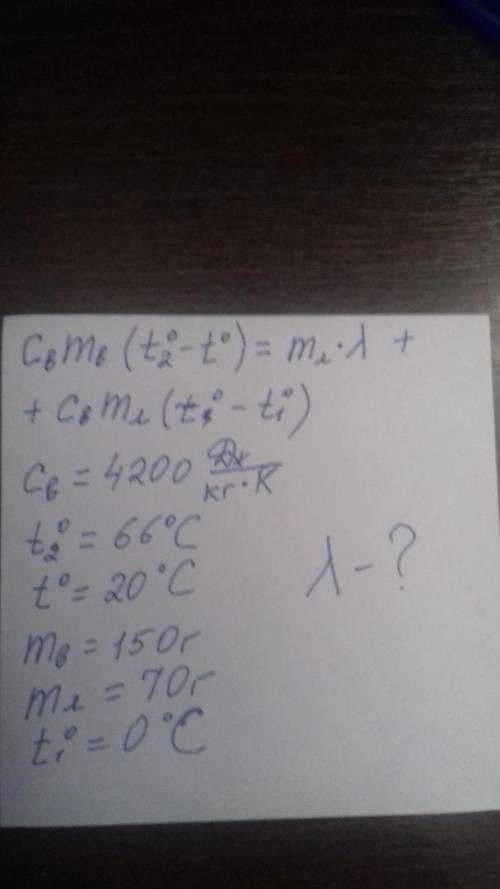 Cвmв (t₂° - t°) = mл · λ +
+ Cвmл (t° - t₁°)
Cв = 4200 Дж/кг·К
t₂° = 66°C
t° = 20°C
λ - ?
mв = 150г
mл = 70г
t₁° = 0°C